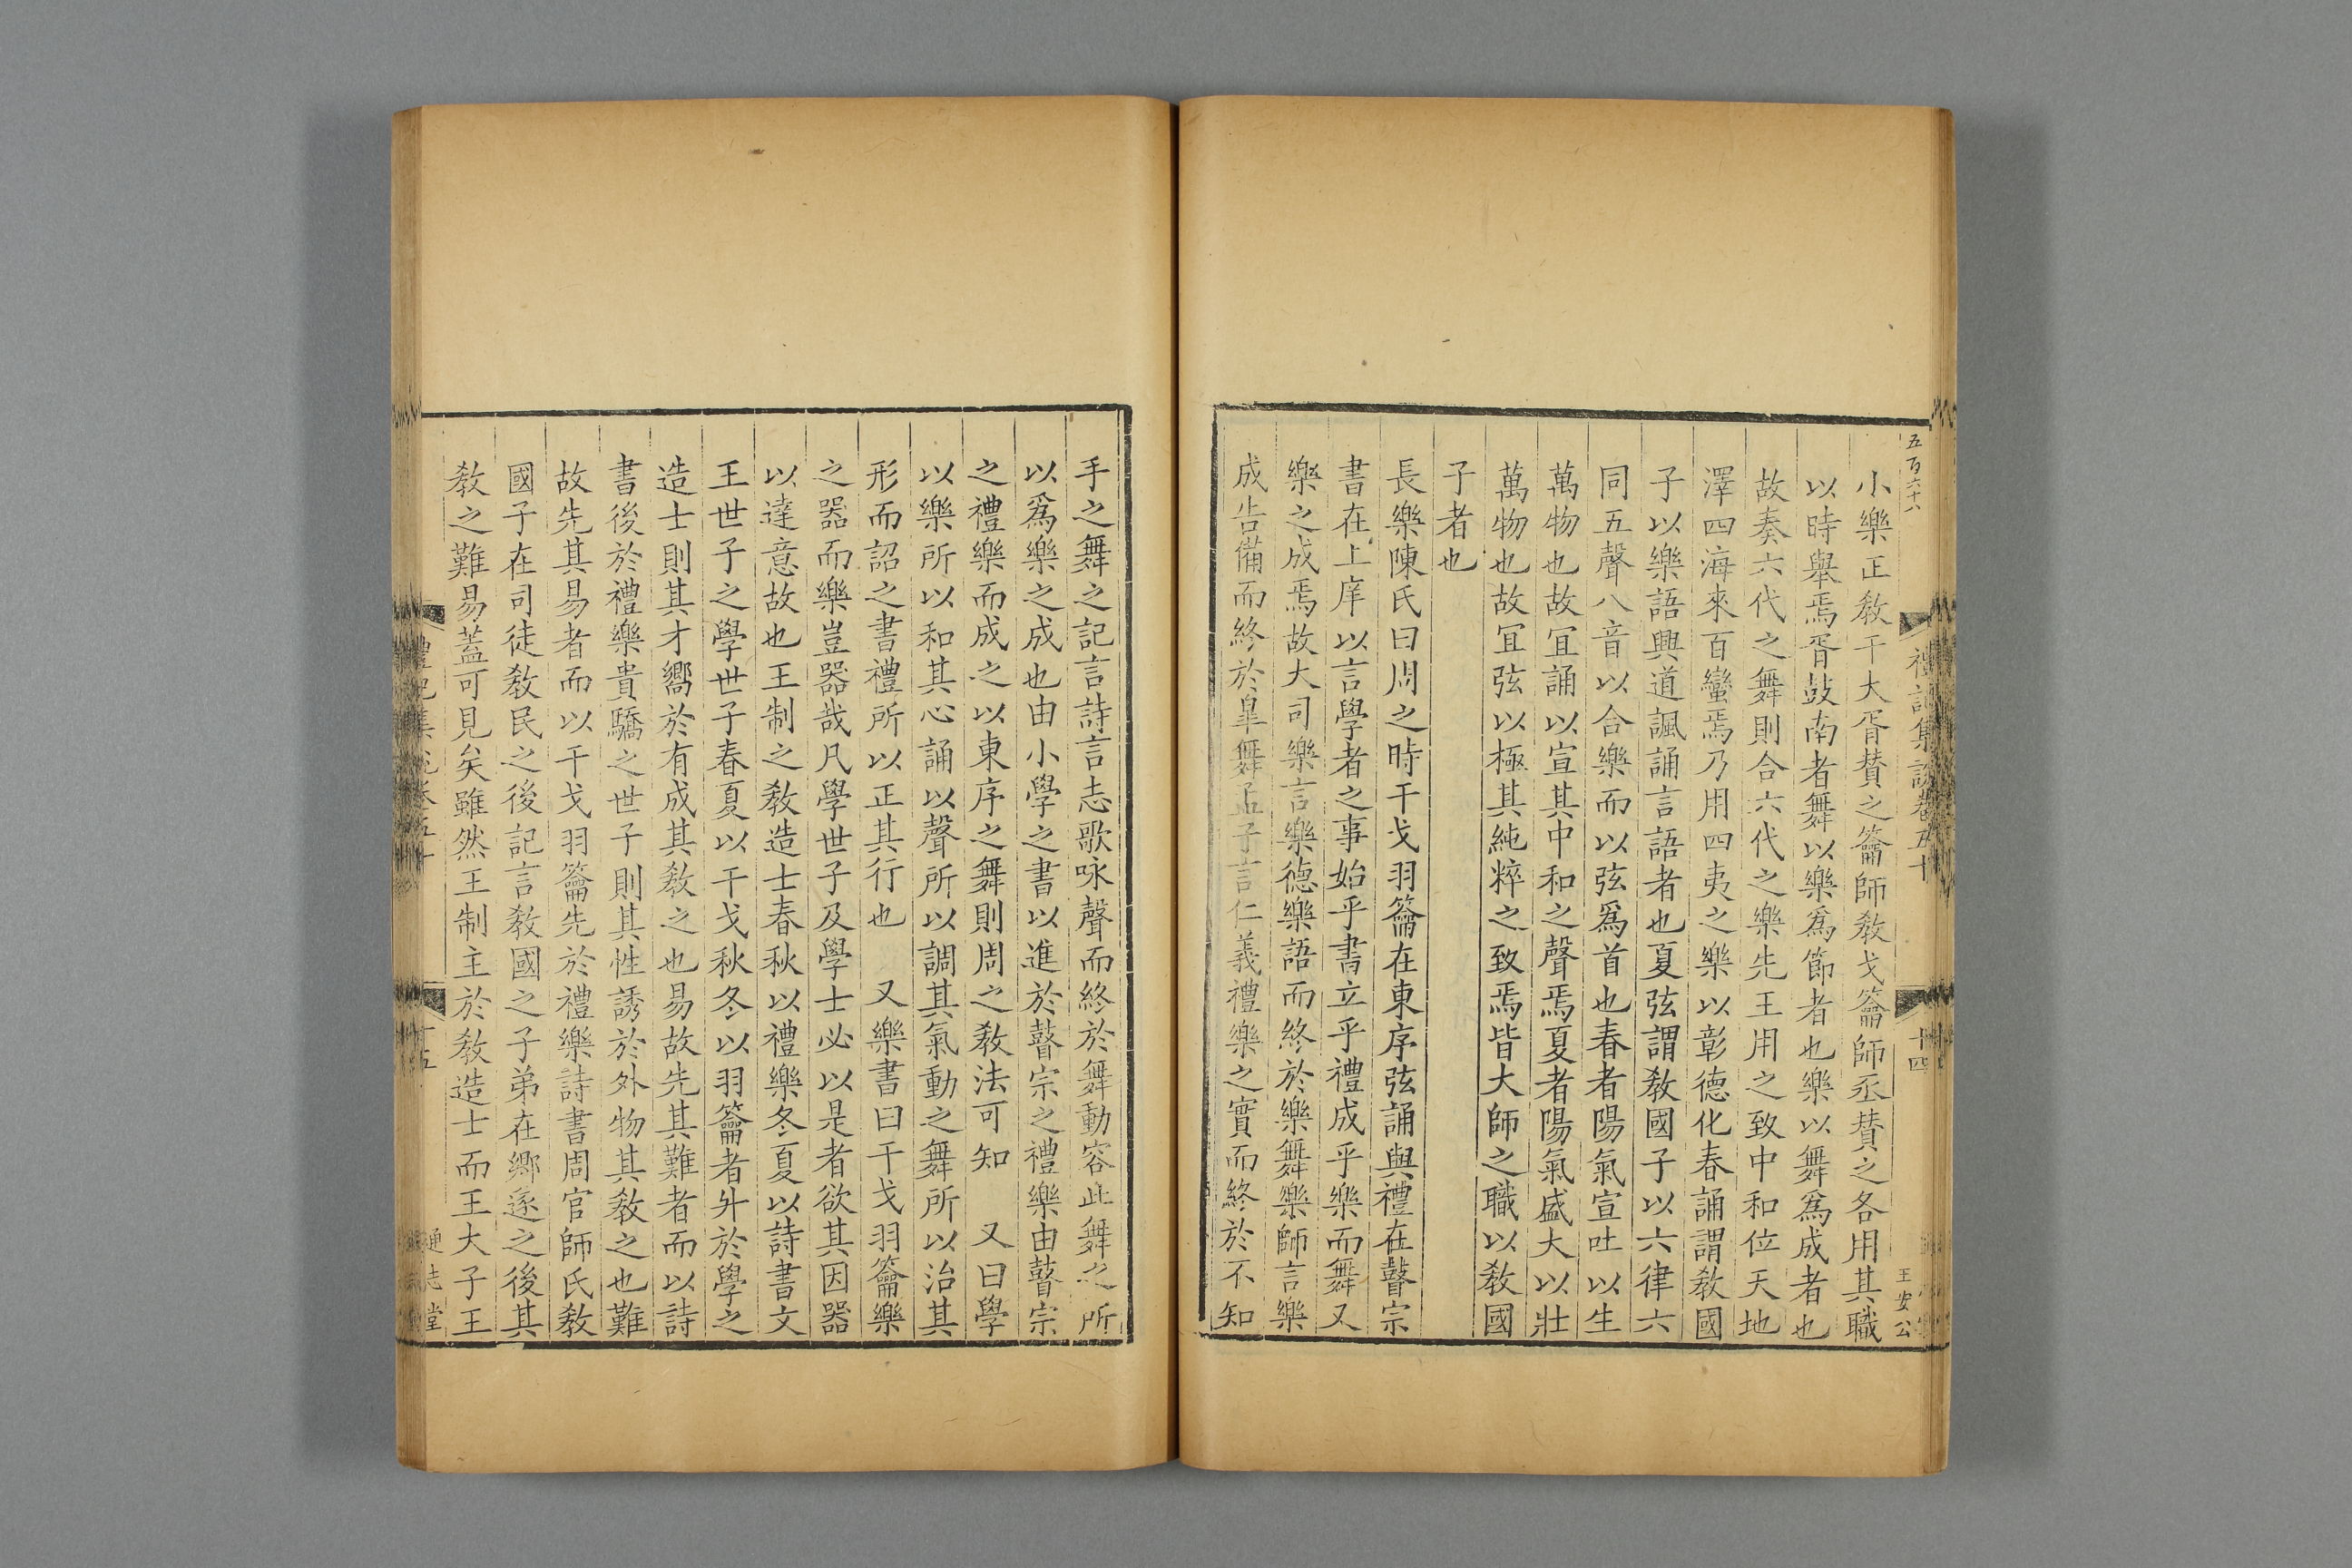 五百六十八
禮記集說卷五十
十四
王安公
小樂正敎干大胥賛之籥師敎戈籥師丞賛之各用其職
以時舉焉胥鼓南者舞以樂爲節者也樂以舞爲成者也
故奏六代之舞則合六代之樂先王用之致中和位天地
澤四海來百蠻焉乃用四夷之樂以彰德化春誦謂敎國
子以樂語興道諷誦言語者也夏弦謂敎國子以六律六
同五聲八音以合樂而以弦爲首也春者陽氣宣吐以生
萬物也故冝誦以宣其中和之聲焉夏者陽氣盛大以壯
萬物也故冝弦以極其純粹之致焉皆大師之職以敎國
子者也
長樂陳氏曰周之時干戈羽籥在東序弦誦與禮在瞽宗
書在上庠以言學者之事始乎書立乎禮成乎樂而舞又
樂之成焉故大司樂言樂德樂語而終於樂舞樂師言樂
成告備而終於臯舞孟子言仁義禮樂之實而終於不知
手之舞之記言詩言志歌咏聲而終於舞動容此舞之所
以爲樂之成也由小學之書以進於瞽宗之禮樂由瞽宗
之禮樂而成之以東序之舞則周之敎法可知　又曰學
以樂所以和其心誦以聲所以調其氣動之舞所以治其
形而詔之書禮所以正其行也　又樂書曰干戈羽籥樂
之器而樂豈器哉凡學世子及學士必以是者欲其因器
以達意故也王制之敎造士春秋以禮樂冬夏以詩書文
王世子之學世子春夏以干戈秋冬以羽籥者升於學之
造士則其才嚮於有成其敎之也易故先其難者而以詩
書後於禮樂貴驕之世子則其性誘於外物其敎之也難
故先其易者而以干戈羽籥先於禮樂詩書周官師氏敎
國子在司徒敎民之後記言敎國之子弟在鄉遂之後其
敎之難易蓋可見矣雖然王制主於敎造士而王大子王
禮記集說卷五十
十五
通志堂